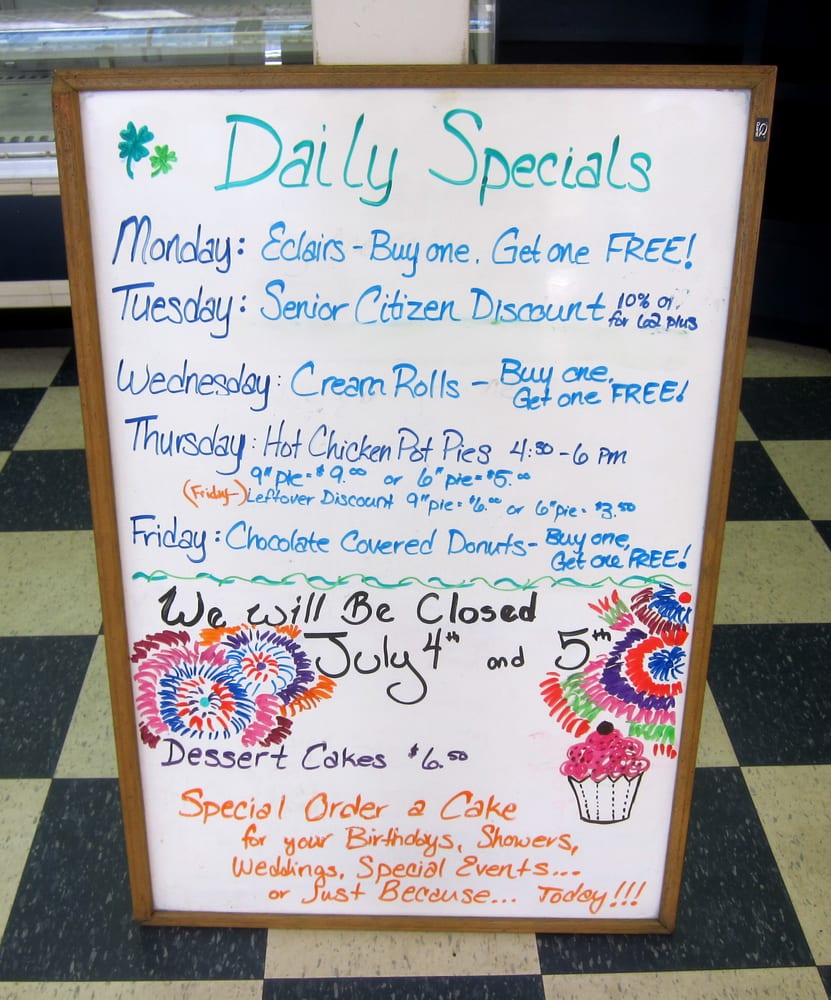 Daily Specials
Monday: Eclairs - Buy one, Get one FREE!
Tuesday: Senior Citizen Discount 10% of
for 62 plus
Wednesday: Cream Rolls - Buy one,
Get one FREE!
Thursday: Hot Chicken Pot Pies 4:30-6 pm
9" pie = $9.00 or 6" pie = $5.00
(Friday) Leftover Discount 9" pie = $6.00 or 6" pie = $3.50
Friday: Chocolate Covered Donuts - Buy one,
Get one FREE!
We will Be Closed
July 4th and 5th
Dessert Cakes $6.50
Special Order a Cake
for your Birthdays, Showers,
Weddings, Special Events...
or Just Because... Today!!!